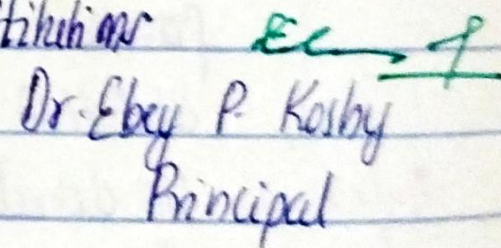 Dr. Ebey P. Kosby
Principal